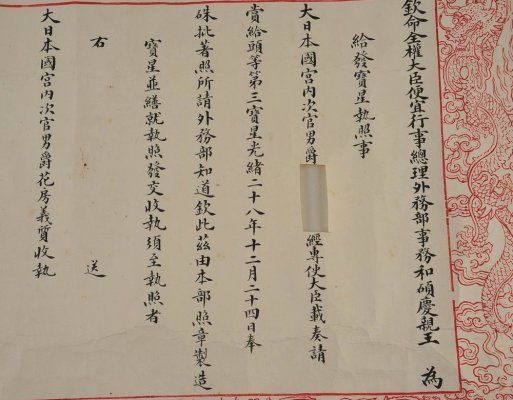 欽命全權大臣便宜行事總理外務部事務和碩慶親王 為
給發寶星執照事
大日本國宮内次官男爵 經專使大臣載奏請
賞給頭等第三寶星光緒二十八年十二月二十四日奉
硃批著照所請外務部知道欽此茲由本部照章製造
寶星並繕就執照發交收執須至執照者
右 送
大日本國宮内次官男爵花房義質收執